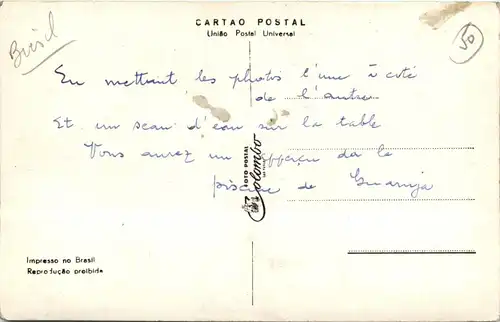 CARTAO POSTAL
União Postal Universal
Brésil
50
En mettant les photos l'une à coté
de l'autre
Et un seau d'eau sur la table
Vous aurez un apperçu da la
piscine de Guaruja
FOTO POSTAL
Colombo
Impresso no Brasil
Reprodução proibida